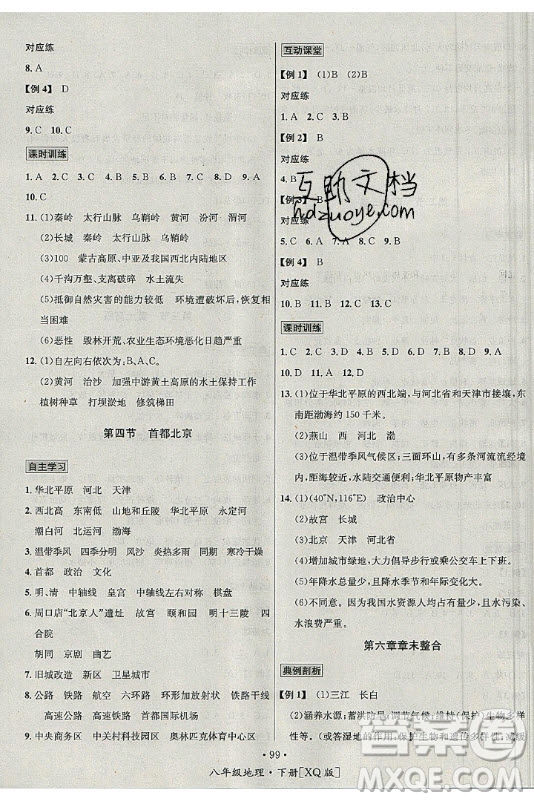 对应练
8. A
【例4】 D
对应练
9. C 10. C
课时训练
1. A 2. C 3. C 4. D 5. A 6. B 7. C 8. B 9. A
10. C
11. (1)秦岭 太行山脉 乌鞘岭 黄河 汾河 秦岭
(2)长城 秦岭 太行山脉 乌鞘岭
(3)100 蒙古高原、中亚及我国西北内陆地区
(4)千沟万壑、支离破碎 水土流失
(5)抵御自然灾害的能力较低 环境遭受破坏后,恢复相
当困难
(6)恶性 毁林开荒、农业生态环境恶化日趋严重
12. (1)自左向右依次为:B、A、C。
(2)黄河 沙土 加强中游黄土高原的水土保持工作
植树种草 打坝淤地 修筑梯田
第四节 首都北京
自主学习
1. 华北平原 河北 天津
2. 西北高 东南低 山地和丘陵 永定河 拒马河
潮白河 北运河 泃河
3. 温带季风 四季分明 风沙 炎热多雨 温和晴朗
4. 首都 政治 文化
5. 元大都 明清 皇宫 中轴线 中轴线 城墙
6. 周口店“北京人”遗址 故宫 颐和园 明十三陵 四
合院
7. 旧城改造 新区 卫星城市
8. 公路 铁路 航空 环形加放射状 公共 铁路
9. 中关村 中央商务区 奥林匹克公园 中关村科技园
互动课堂
【例1】 (1)B (2)B
对应练
1. A 2. C 3. B
【例2】 B
对应练
4. B
对应练
10. B 11. B 12. A 13. C
课时训练
1. C 2. D 3. D 4. C 5. B 6. B 7. D 8. D 9. A
10. D 11. A 12. C
13. (1)位于华北平原的西北端,与河北省和天津市接壤,东
南距渤海约150千米。
(2)燕山 西 西北 东南
(3)位于温带季风气候区;三面环山,有多条河流流经境
内,水陆交通便利,地理位置优越。
14. (1)(40°N,116°E) 政治中心
(2)故宫 长城
(3)北京 天津
(4)增加城市绿地,大力提倡公共交通等。
(5)年降水总量少,降水季节和年际变化大。
(6)不同意。因为我国水资源人均占有量少,保护水资源
人人有责。
第六章章末整合
典例剖析
【例1】 (1)三江 长白
· 99 ·
八年级地理·下册[XQ版]
互助文档
hdzuoye.com
MXQE.COM